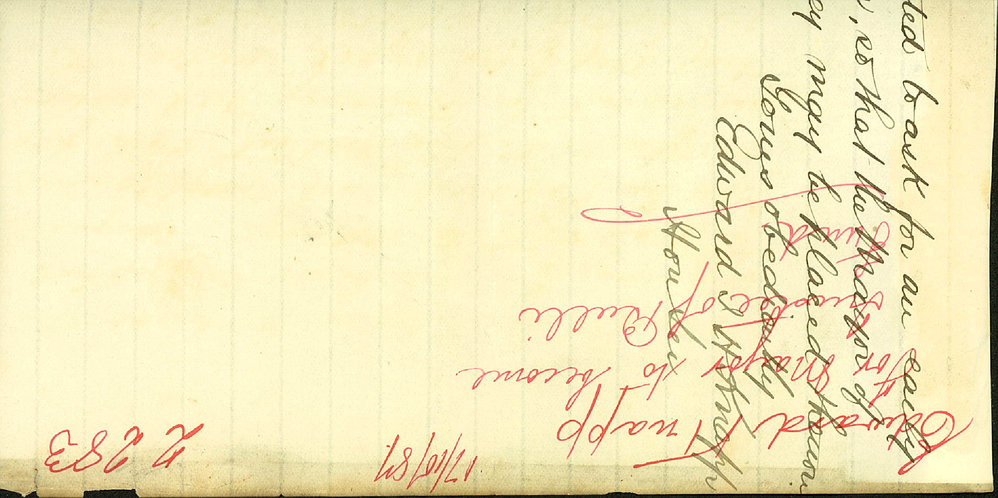 ted to ask for an early
, so that the Mayor of
ey may be placed thereon.
Yours obediently
Edward J H Knapp
Hon Sec
2283
17/10/87.
Edward Knapp
For Mayor to become
Trustee of Public
Fund